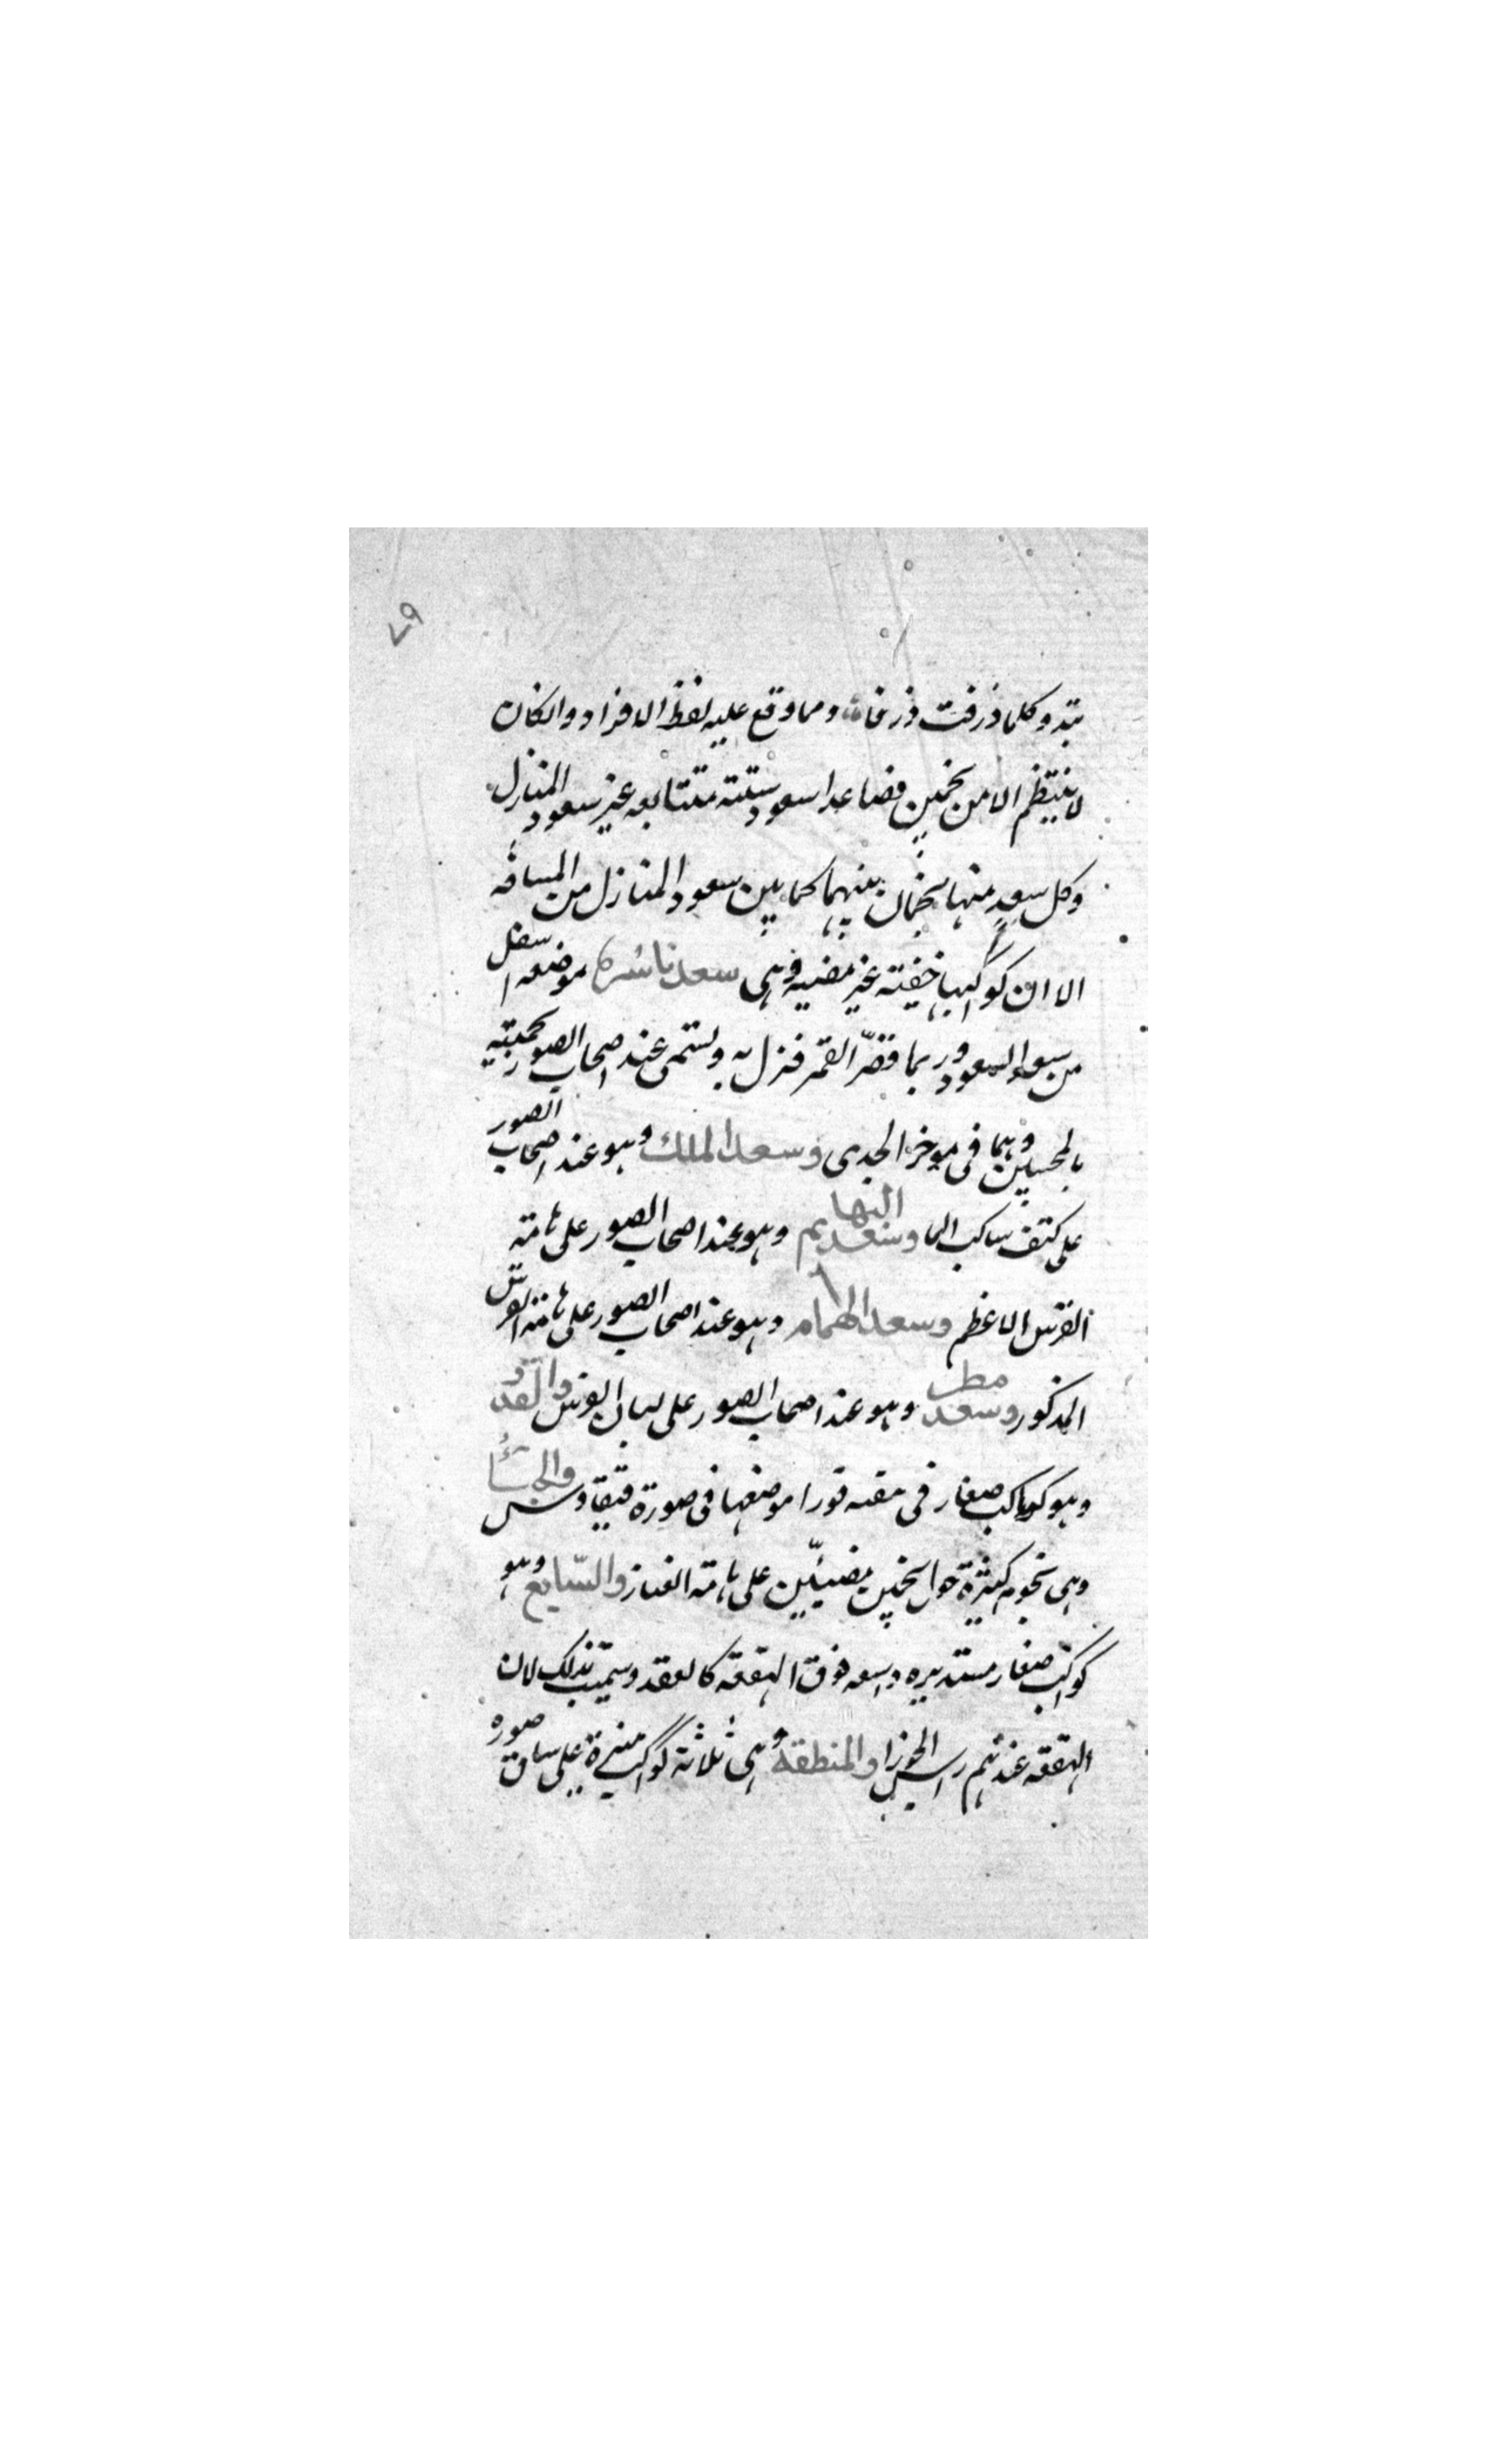 ٧٩
تبدو كلما ذرفت ذرفا ومما وقع عليه لفظ الافراد والكان
لا ينتظم الا من نجمين فصاعدا سعود ستة متتابعه غير سعود المنازل
وكل سعد منها نجمان بينهما كما بين سعود المنازل من المسافه
الا ان كواكبها خفية غير مضيه وهى سعد ناشره موضعه اسفل
من سعد السعود وربما قصّر القمر فنزل به ويسمى عند اصحاب الصور
بالمحبين وهما فى موخر الجدى وسعد الملك وهو عند اصحاب الصور
على كتف ساكب الما وسعد البهايم وهو عند اصحاب الصور على هامة
الفرس الاعظم وسعد الهمام وهو عند اصحاب الصور على هامة الفرس
المذكور وسعد مطر وهو عند اصحاب الصور على الفرس
وهو كواكب صغار فى موضعها فى صورة
وهى نجوم كثيرة حول نجمين مضيئين على هامة
كواكب صغار مستديره واسعه فوق الهقعه كالعقد وسميت بذلك لان
الهقعه عندهم راس الجوزا والمنطقة وهى ثلاثة كواكب منيرة على ساق صوره